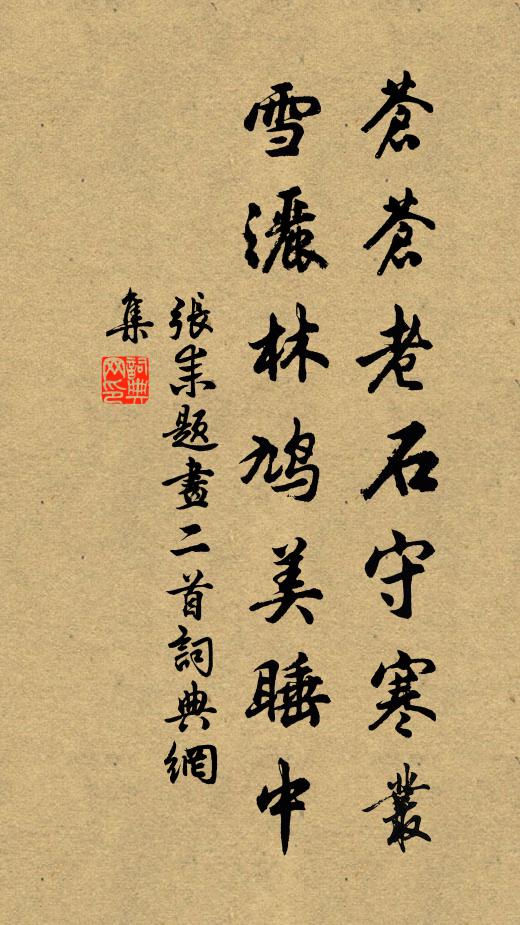 蒼蒼老石守寒叢
雪灑林鳩美睡中
張耒題畫二首詞典網
集
詞典
網印